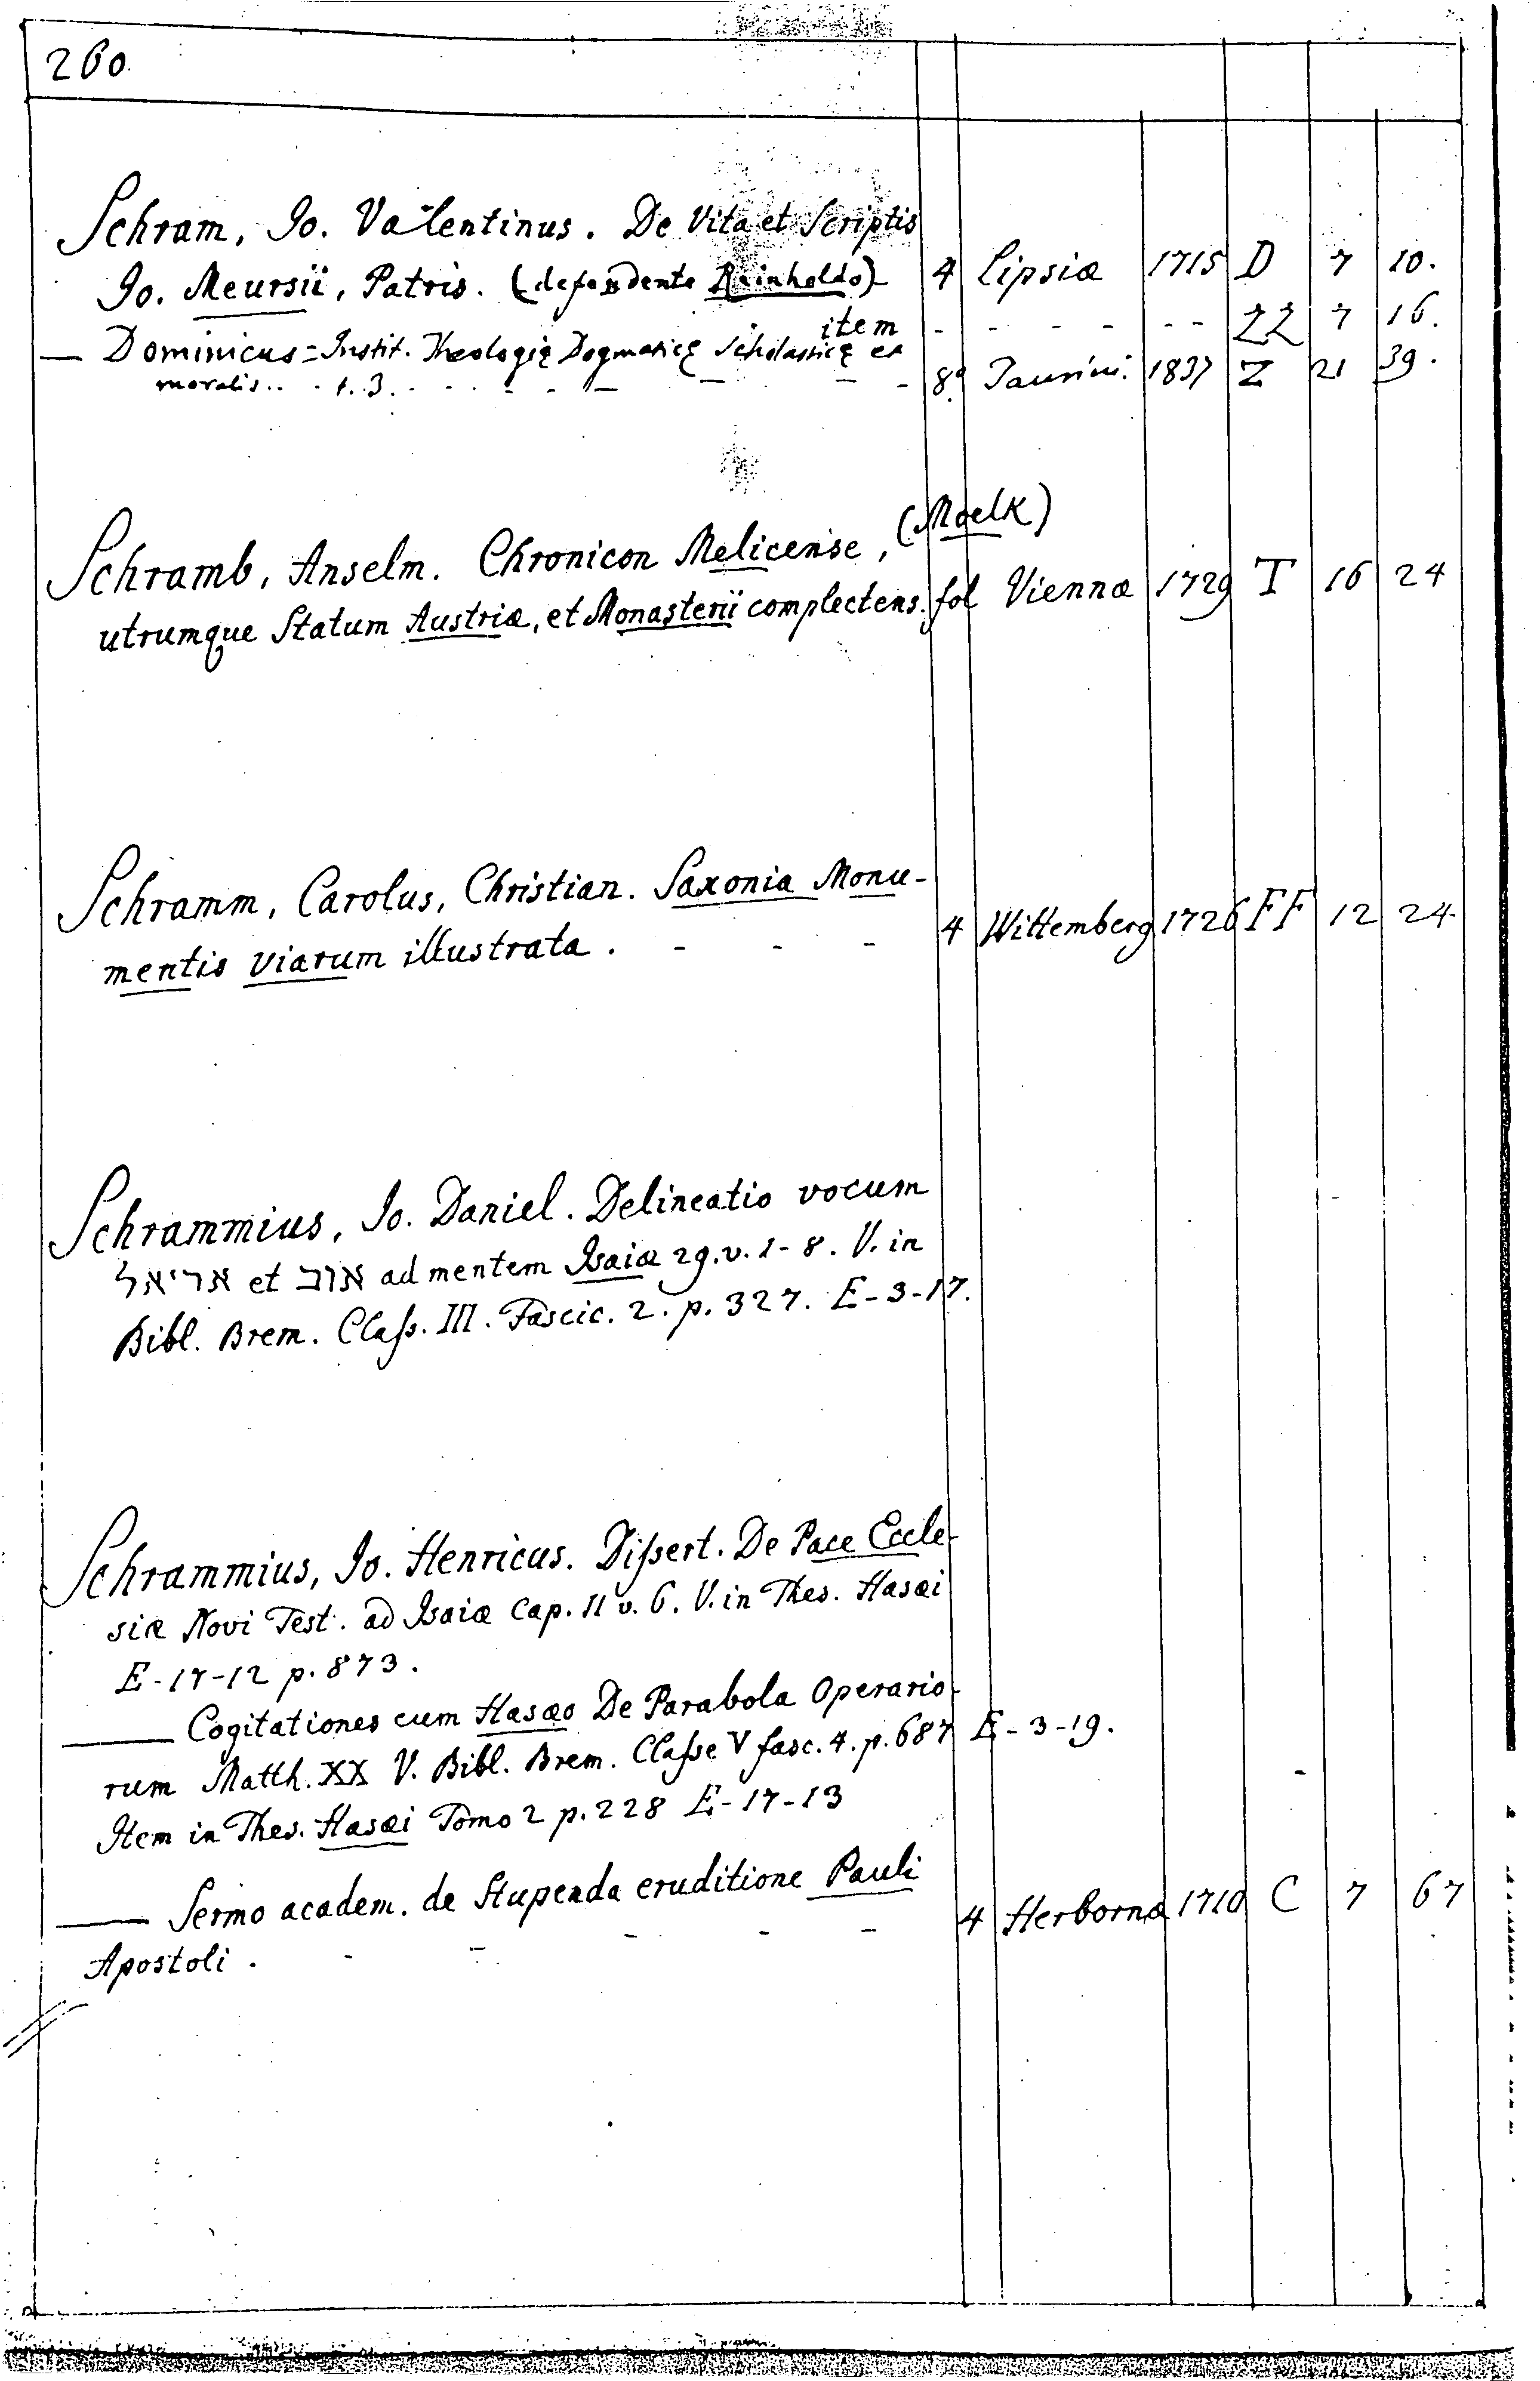 260.
Schram, Jo. Valentinus. De Vita et Scriptis
Jo. Meursii, Patris. (defendente Reinholdo) 4 Lipsiæ 1715 D 7 10.
item - - - - - - ZZ 7 16.
— Dominicus = Instit. Theologię Dogmaticę Scholasticę et
moralis.. . t. 3. - - - - - - - 8.º Taurini. 1837 Z 21 39.
Schramb, Anselm. Chronicon Melicense, (Moelk)
utrumque Statum Austriæ, et Monasterii complectens. fol Viennæ 1729 T 16 24
Schramm, Carolus, Christian. Saxonia Monu-
mentis viarum illustrata . - - - 4 Wittemberg 1726 FF 12 24.
Schrammius, Jo. Daniel. Delineatio vocum
אריאל et אוב ad mentem Isaiæ 29. v. 1-8. V. in
Bibl. Brem. Claſs. III. Fascic. 2. p. 327. E-3-17.
Schrammius, Jo. Henricus. Diſsert. De Pace Eccle-
siæ Novi Test. ad Isaiæ Cap. 11 v. 6. V. in Thes. Hasæi
E-17-12 p. 873.
— Cogitationes cum Hasæo De Parabola Operario-
rum Matth. XX V. Bibl. Brem. Claſse V fasc. 4. p. 687 E-3-19.
Item in Thes. Hasæi Tomo 2 p. 228 E-17-13
— Sermo academ. de Stupenda eruditione Pauli
Apostoli . - - - - - 4 Herbornæ 1710 C 7 67